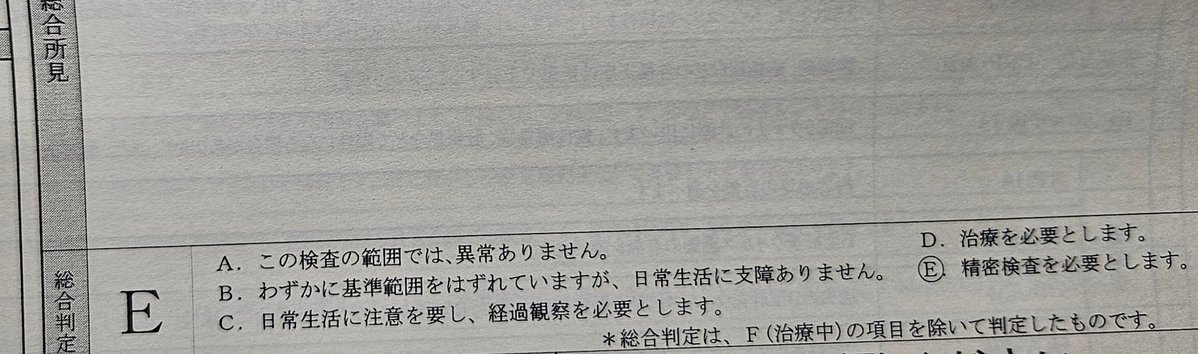 総合所見
総合判定
E
A. この検査の範囲では、異常ありません。
B. わずかに基準範囲をはずれていますが、日常生活に支障ありません。
C. 日常生活に注意を要し、経過観察を必要とします。
D. 治療を必要とします。
Ⓔ. 精密検査を必要とします。
*総合判定は、F(治療中)の項目を除いて判定したものです。